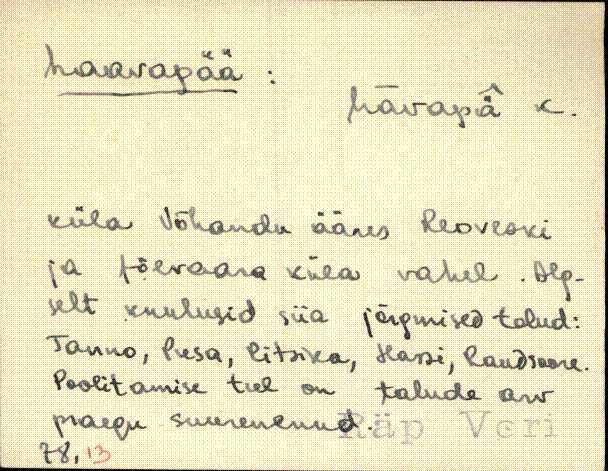 haavapää:
hāvapä̂ k.
küla Võhandu ääres Leoveski
ja Jõevaara küla vahel. Alg-
selt kuulusid siia järgmised talud:
Janno, Piesa, Ritsika, Hassi, Raudsoore.
Poolitamise teel on talude arv
praegu suurenenud. Räp Veri
78, 13